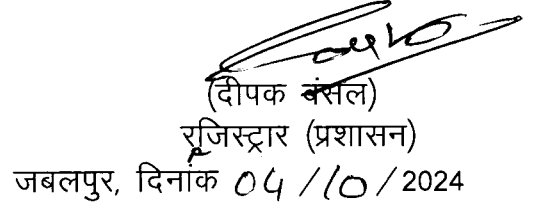 (दीपक बंसल)
रजिस्ट्रार (प्रशासन)
जबलपुर, दिनांक 04/10/2024